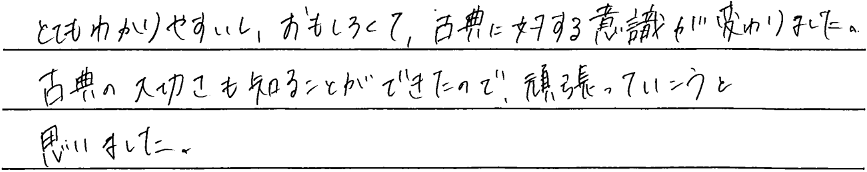 とてもわかりやすいし、おもしろくて、古典に対する意識が変わりました。
古典の大切さも知ることができたので、頑張っていこうと
思いました。